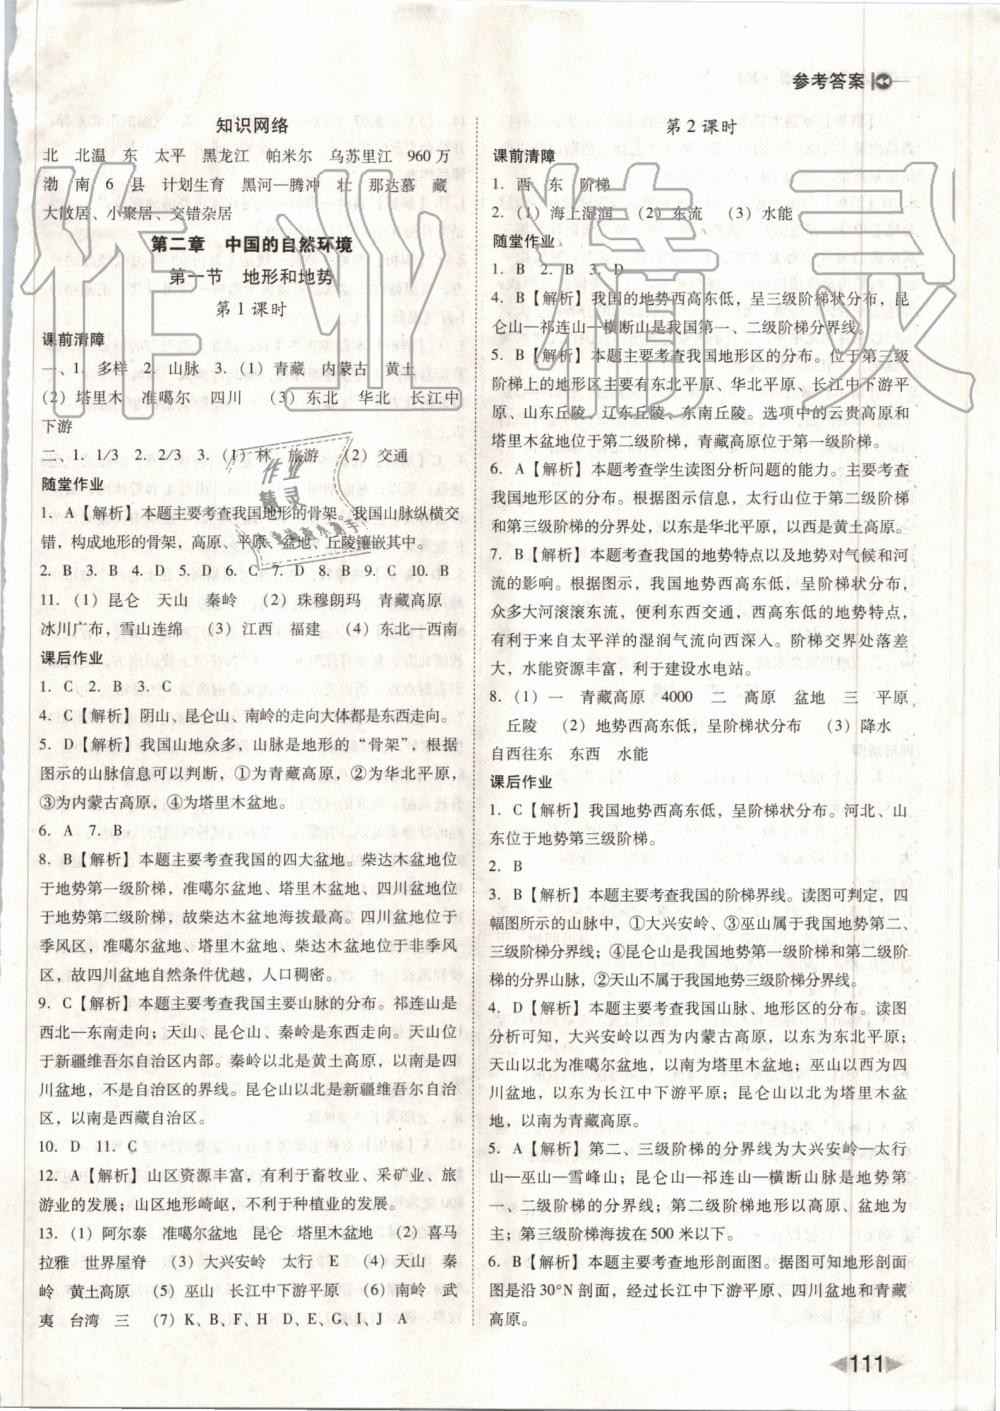 参考答案
知识网络
北 北温 东 太平 黑龙江 帕米尔 乌苏里江 960万
渤 南 6 县 计划生育 黑河—腾冲 壮 那达慕 藏
大散居、小聚居、交错杂居
第二章 中国的自然环境
第一节 地形和地势
第1课时
课前清障
一、1. 多样 2. 山脉 3. (1) 青藏 内蒙古 黄土
(2) 塔里木 准噶尔 四川 (3) 东北 华北 长江中
下游
二、1. 1/3 2. 2/3 3. (1) 林 旅游 (2) 交通
随堂作业
1. A【解析】本题主要考查我国地形的骨架。我国山脉纵横交
错，构成地形的骨架，高原、平原、盆地、丘陵镶嵌其中。
2. B 3. B 4. D 5. D 6. C 7. D 8. B 9. C 10. B
11. (1) 昆仑 天山 秦岭 (2) 珠穆朗玛 青藏高原
冰川广布，雪山连绵 (3) 江西 福建 (4) 东北—西南
课后作业
1. C 2. B 3. C
4. C【解析】阴山、昆仑山、南岭的走向大体都是东西走向。
5. D【解析】我国山地众多，山脉是地形的“骨架”，根据
图示的山脉信息可以判断，①为青藏高原，②为华北平原，
③为内蒙古高原，④为塔里木盆地。
6. A 7. B
8. B【解析】本题主要考查我国的四大盆地。柴达木盆地位
于地势第一级阶梯，准噶尔盆地、塔里木盆地、四川盆地位
于地势第二级阶梯，故柴达木盆地海拔最高。四川盆地位于
季风区，准噶尔盆地、塔里木盆地、柴达木盆地位于非季风
区，故四川盆地自然条件优越，人口稠密。
9. C【解析】本题主要考查我国主要山脉的分布。祁连山是
西北—东南走向；天山、昆仑山、秦岭是东西走向。天山位
于新疆维吾尔自治区内部。秦岭以北是黄土高原，以南是四
川盆地，不是自治区的界线。昆仑山以北是新疆维吾尔自治
区，以南是西藏自治区。
10. D 11. C
12. A【解析】山区资源丰富，有利于畜牧业、采矿业、旅
游业的发展；山区地形崎岖，不利于种植业的发展。
13. (1) 阿尔泰 准噶尔盆地 昆仑 塔里木盆地 (2) 喜马
拉雅 世界屋脊 (3) 大兴安岭 太行 E (4) 天山 秦
岭 黄土高原 (5) 巫山 长江中下游平原 (6) 南岭 武
夷 台湾 三 (7) K、B、F、H D、E、G、I、J A
第2课时
课前清障
1. 西 东 阶梯
2. (1) 海上湿润 (2) 东流 (3) 水能
随堂作业
1. B 2. B 3. D
4. B【解析】我国的地势西高东低，呈三级阶梯状分布，昆
仑山—祁连山—横断山是我国第一、二级阶梯分界线。
5. B【解析】本题主要考查我国地形区的分布。位于第三级
阶梯上的地形区主要有东北平原、华北平原、长江中下游平
原、山东丘陵、辽东丘陵、东南丘陵。选项中的云贵高原和
塔里木盆地位于第二级阶梯，青藏高原位于第一级阶梯。
6. A【解析】本题考查学生读图分析问题的能力。主要考查
我国地形区的分布。根据图示信息，太行山位于第二级阶梯
和第三级阶梯的分界处，以东是华北平原，以西是黄土高原。
7. B【解析】本题考查我国的地势特点以及地势对气候和河
流的影响。根据图示，我国地势西高东低，呈阶梯状分布，
众多大河滚滚东流，便利东西交通，西高东低的地势特点，
有利于来自太平洋的湿润气流向西深入。阶梯交界处落差
大，水能资源丰富，利于建设水电站。
8. (1) 一 青藏高原 4000 二 高原 盆地 三 平原
丘陵 (2) 地势西高东低，呈阶梯状分布 (3) 降水
自西往东 东西 水能
课后作业
1. C【解析】我国地势西高东低，呈阶梯状分布。河北、山
东位于地势第三级阶梯。
2. B
3. B【解析】本题主要考查我国的阶梯界线。读图可判定，四
幅图所示的山脉中，①大兴安岭、③巫山属于我国地势第二、
三级阶梯分界线；④昆仑山是我国地势第一级阶梯和第二级阶
梯的分界山脉，②天山不属于我国地势三级阶梯的分界线。
4. D【解析】本题主要考查山脉、地形区的分布。读图
分析可知，大兴安岭以西为内蒙古高原，以东为东北平原；
天山以北为准噶尔盆地，以南为塔里木盆地；巫山以西为四
川盆地，以东为长江中下游平原；昆仑山以北为塔里木盆
地，以南为青藏高原。
5. A【解析】第二、三级阶梯的分界线为大兴安岭—太行
山—巫山—雪峰山；昆仑山—祁连山—横断山脉是地势第
一、二级阶梯的分界线；第二级阶梯地形以高原、盆地为
主；第三级阶梯海拔在500米以下。
6. B【解析】本题主要考查地形剖面图。据图可知地形剖面
图是沿30°N剖面，经过长江中下游平原、四川盆地和青藏
高原。
111
作业精灵
作业
精灵